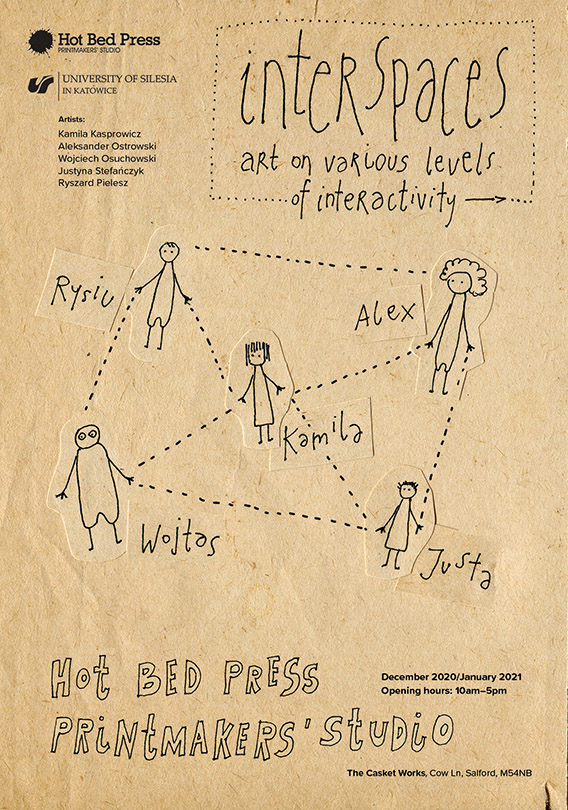 Hot Bed Press
PRINTMAKERS' STUDIO
UNIVERSITY OF SILESIA
IN KATOWICE
Artists:
Kamila Kasprowicz
Aleksander Ostrowski
Wojciech Osuchowski
Justyna Stefańczyk
Ryszard Pielesz
interspaces
art on various levels
of interactivity
Rysiu
Alex
Kamila
Wojtas
Justa
Hot BED PRESS
PRiNtMAKERS' StUDiO
December 2020/January 2021
Opening hours: 10am–5pm
The Casket Works, Cow Ln, Salford, M54NB